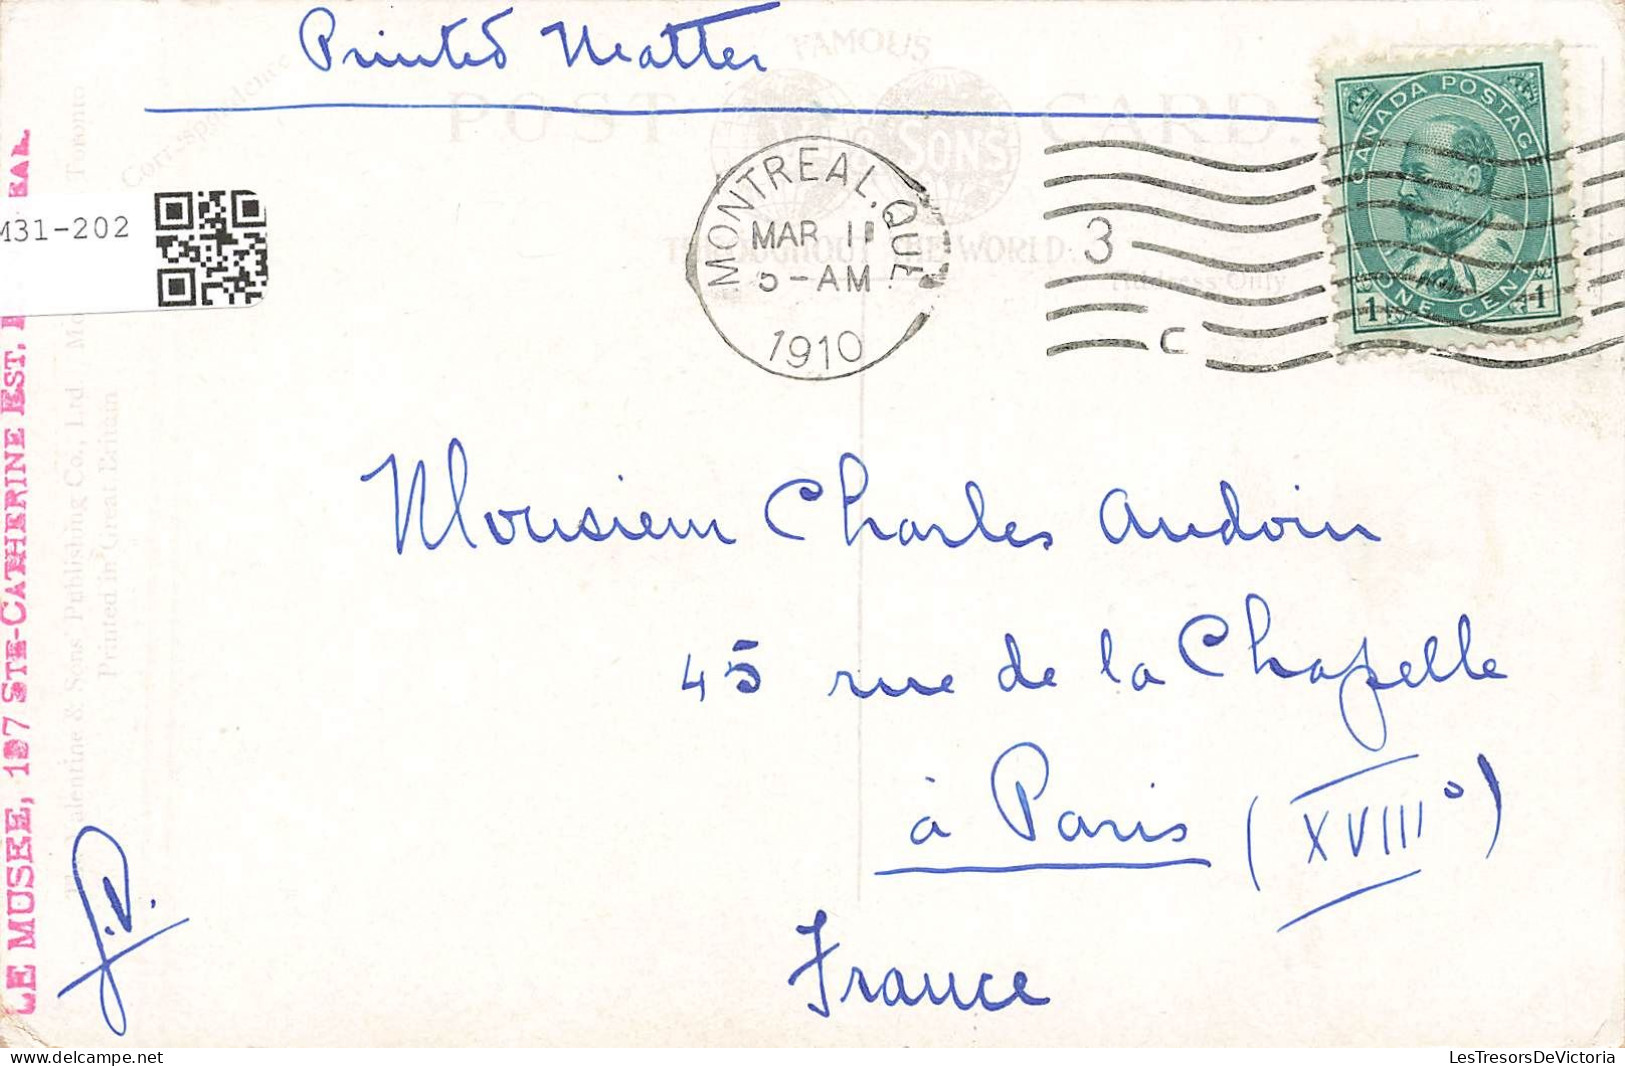 Printed Matter
FAMOUS
POST CARD.
& SONS
THROUGHOUT THE WORLD.
Address Only
Correspondence
CANADA POSTAGE
1 ONE CENT 1
MONTREAL, QUE
MAR 11
5-AM
1910
3
C
M31-202
Monsieur Charles Audoin
45 rue de la Chapelle
à Paris (XVIII°)
France
J.D.
LE MUSEE, 197 STE-CATHERINE EST,
Valentine & Sons' Publishing Co., Ltd Toronto
Printed in Great Britain
delcampe.net
LesTresorsDeVictoria